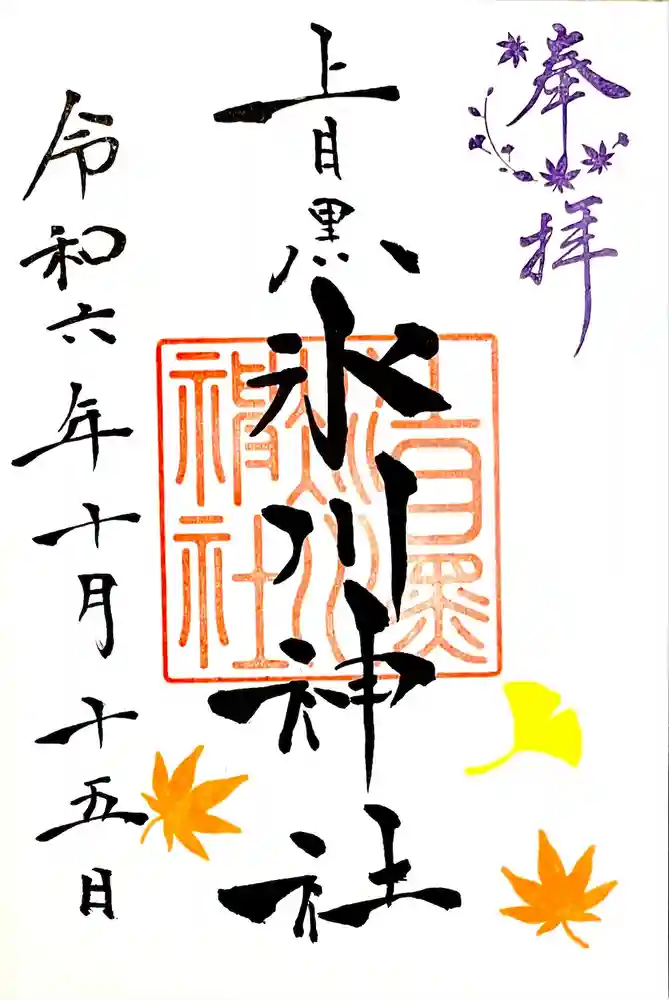 奉拝
上目黒氷川神社
上目黒氷川神社
令和六年十月十五日